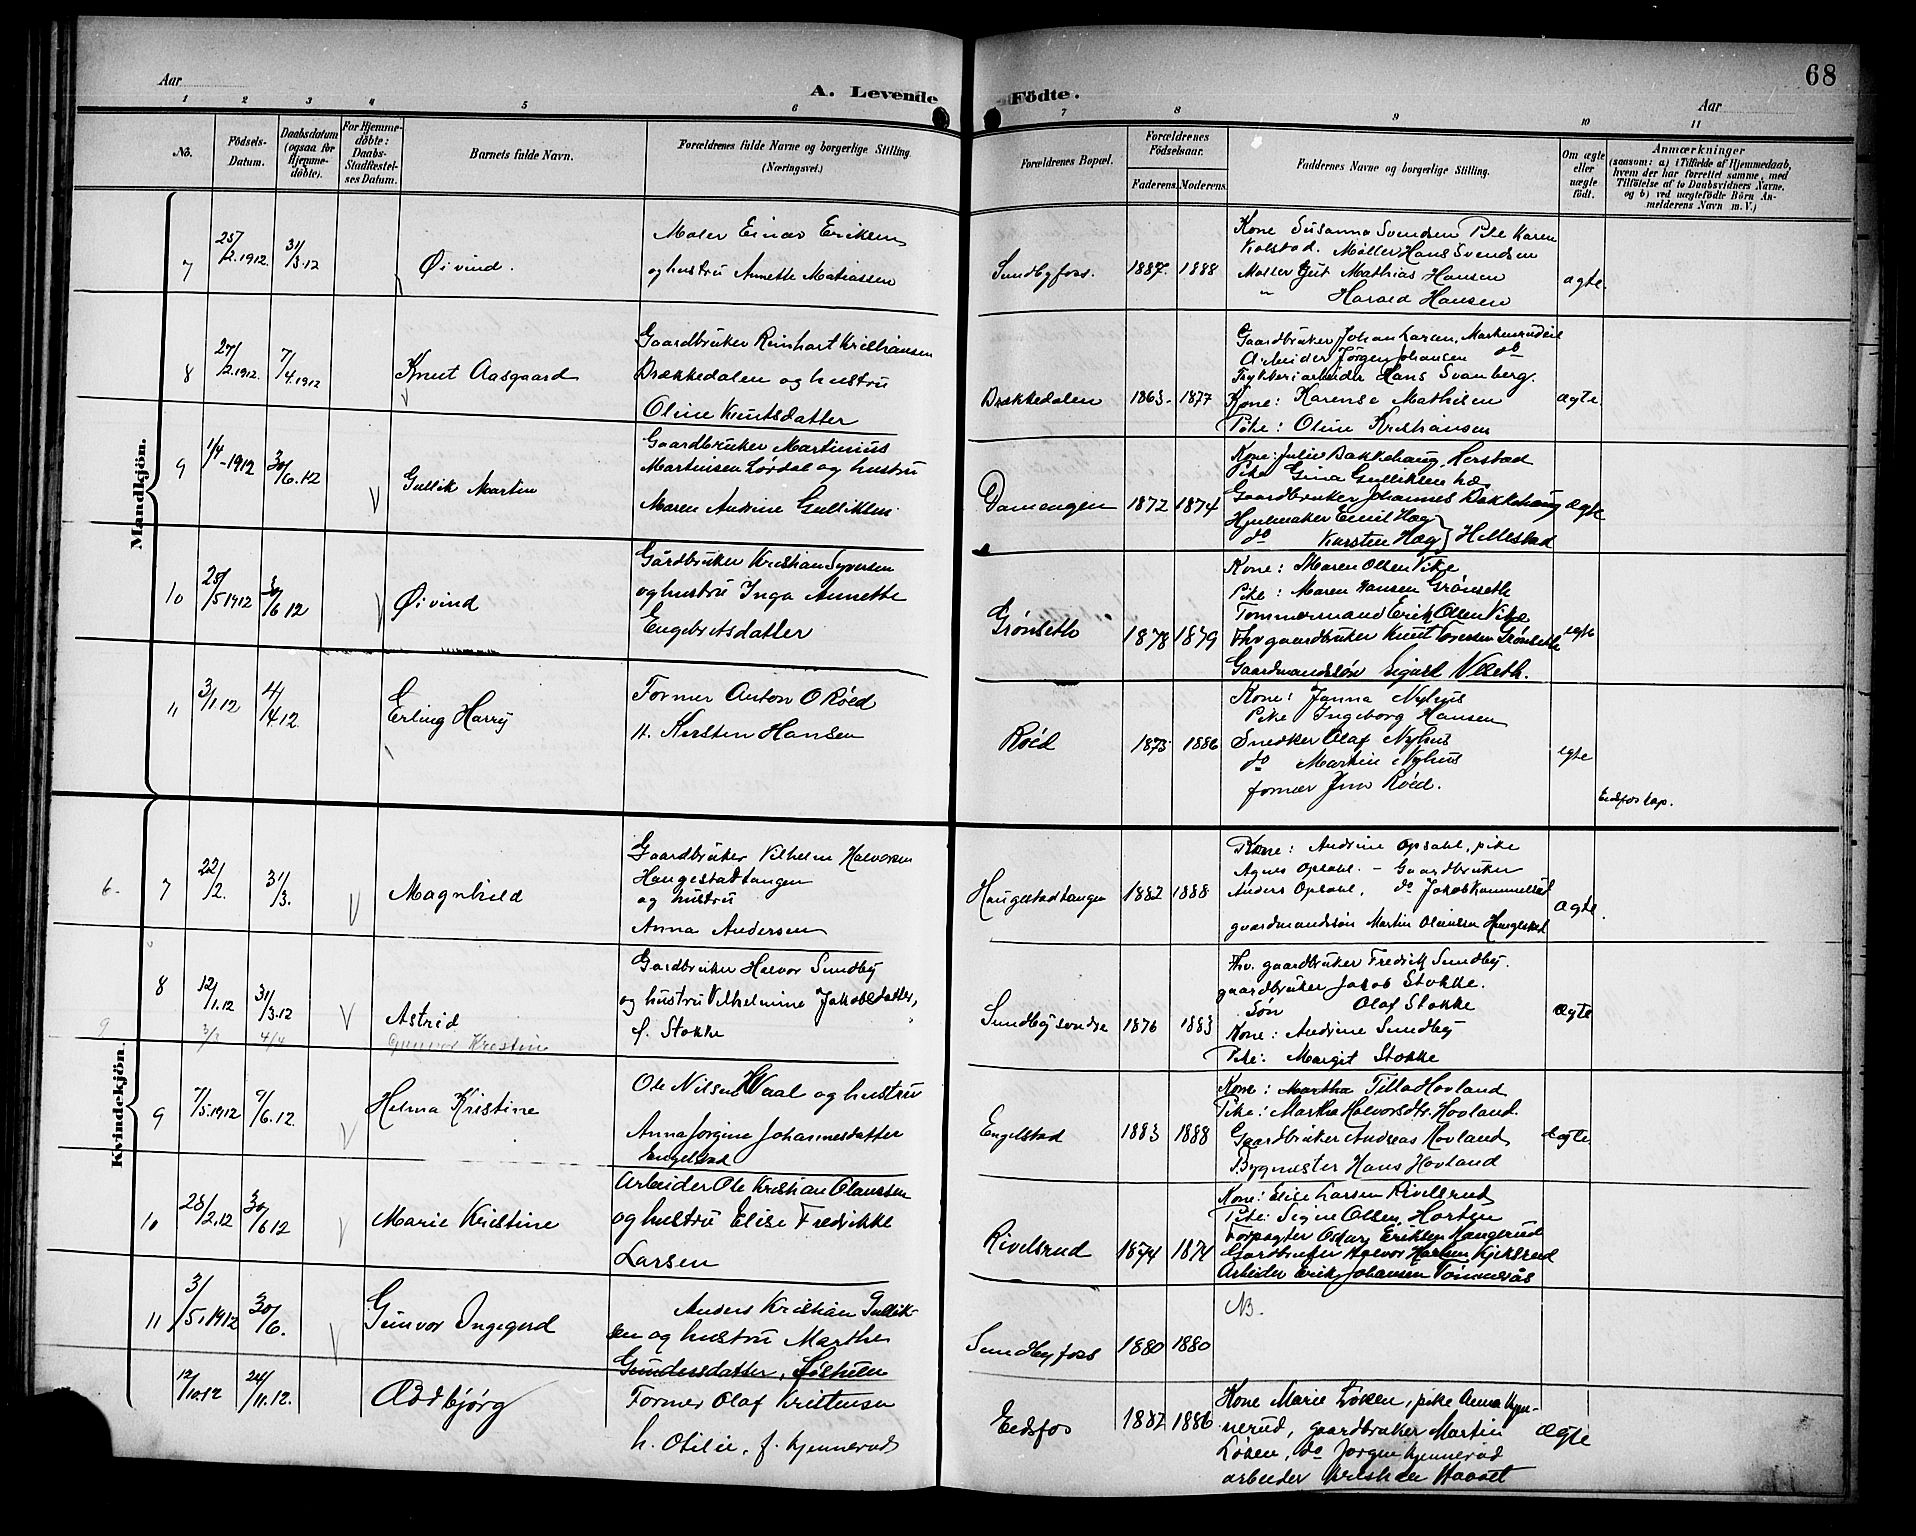 68
Aar
A. Levende Födte.
Aar
1 2 3 4 5 6 7 8 9 10 11
No.
Födsels-Datum.
Daabsdatum (ogsaa for Hjemme-döbte).
For Hjemme-döbte: Daabs-Stadfæstel-ses Datum.
Barnets fulde Navn.
Forældrenes fulde Navne og borgerlige Stilling.
(Næringsvei.)
Forældrenes Bopæl.
Forældrenes Födselsaar.
Faderens. Moderens.
Faddernes Navne og borgerlige Stilling.
Om ægte eller uægte födt.
Anmærkninger
(saasom: a) i Tilfælde af Hjemmedaab,
hvem der har forrettet samme, med
Tilföielse af to Daabsvidners Navne.
og b) ved uægtefödte Börn An-
melderens Navn m. V.)
Mandkjön.
7 25/2.1912. 31/3.12 Øivind.
Maler Einar Eriksen
og hustru Annette Matiassen
Sundbyfoss. 1887. 1888
Kone Susanna Svendsen Pike Karen
Kolstad. Møller Hans Svendsen
Møller Gut Mathias Hansen
" Harald Hansen
ægte.
8 27/2.1912. 7/4.1912 Knut Aasgaard
Gaardbruker Reinhart Kristiansen
Brækkedalen og hustru
Oline Knutsdatter
Brækkedalen 1863. 1877
Gaardbruker Johan Larsen, Markerud eie
Arbeider Jørgen Johansen do
Trykkeriarbeider Hans Svanberg.
Kone: Karense Mathisen
Pike: Oline Kristiansen
ægte.
9 1/4-1912 30/6.12 Gullik Martin
Gaardbruker Martinius
Martinsen Lørdal og hustru
Maren Andrine Gulliksen
Damengen 1872 1874
Kone: Julie Bakkehaug, Herstad
Pike Gina Gulliksen hæ
Gaardbruker Johannes Bakkehaug
Hjulmaker Emil Hæg
do Karsten Hæg } Hillestad
ægte
10 28/5 1912 30/6 12 Øivind
Gårdbruker Kristian Syversen
og hustru Inga Annette
Engebretsdatter
Grønseth 1878 1879
Kone: Maren Olsen Vike
Pike: Maren Hansen Grønseth
Tømmermand Erik Olsen Vike
Fhv gaardbruker Knut Iversen Grønseth
Gaardmandsøn Sigurd Vleeth.
egte
11 3/1.12 4/4.12. Erling Harry
Former Anton O Røed
H. Kirsten Hansen
Røed 1873 1886
Kone: Janna Nyhus
Pike Ingeborg Hansen
Snedker Olaf Nyhus
do Martin Nyhus
former Jens Røed.
egte
Eidsfos kap.
Kvindekjön.
6. 7 22/2. 31/3. Magnhild
Gaardbruker Vilhelm Halvorsen
Haugestadtangen
og hustru
Anna Andersen
Haugestadtangen 1882 1888
Kone: Andrine Opsahl, pike
Agnes Opsahl. – Gaardbruker
Anders Opsahl, do Jakob Kummelsrud
gaardmandssøn Martin Olausen Haugestad
ægte.
8 12/1.12 31/3.12 Astrid
Gardbruker Halvor Sundby
og hustru Vilhelmine Jakobsdatter,
f. Stokke
Sundby søndre 1876 1883
Fhv. gaardbruker Fredrik Sundby.
gaardbruker Jakob Stokke.
Søn Olaf Stokke
Kone: Andrine Sundby
Pike: Margit Stokke
ægte
9 3/3 4/4 Gunvor Kristin
9 7/5.1912 9/6.12. Helma Kristine
Ole Nilsen Waal og hustru
Anna Jorgine Johannesdatter
Engelstad
Engelstad 1883 1888
Kone: Martha Tilla Hovland
Pike: Martha Halvorsdtr. Hovland.
Gaardbruker Andreas Hovland
Bygmester Hans Hovland
ægte
10 28/2.12 30/6 12 Marie Kristine
Arbeider Ole Kristian Olaussen
og hustru Elise Fredrikke
Larsen
Rivelsrud 1874 1874
Kone: Elise Larsen Rivelsrud
Pike: Signe Olsen, Horten
Forpagter Oskar Eriksen Haugerud
Gardbruker Halvor Hansen Kjeksrud
Arbeider Erik Johansen Tømmerås
11 3/5.1912 30/6. Gunvor Ingegerd
Anders Kristian Gullik-
sen og hustru Marthe
Gundersdatter, Solheim
Sundbyfoss 1880 1880
NB.
12/10.12 24/11.12. Oddbjørg
Former Olaf Kristensen
h. Otilie, f. Kjennerud
Eidsfos 1882 1886
Kone Marie Løken, pike Anna Kjen-
nerud, gaardbruker Martin
Løken, do Jørgen Kjennerud
arbeider Kristian Haavet
Ægte